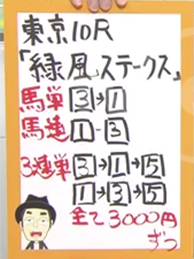 東京10R
「緑風ステークス」
馬単 3→1
馬連 1-3
3連単 3→1→5
1→3→5
全て3000円
ずつ